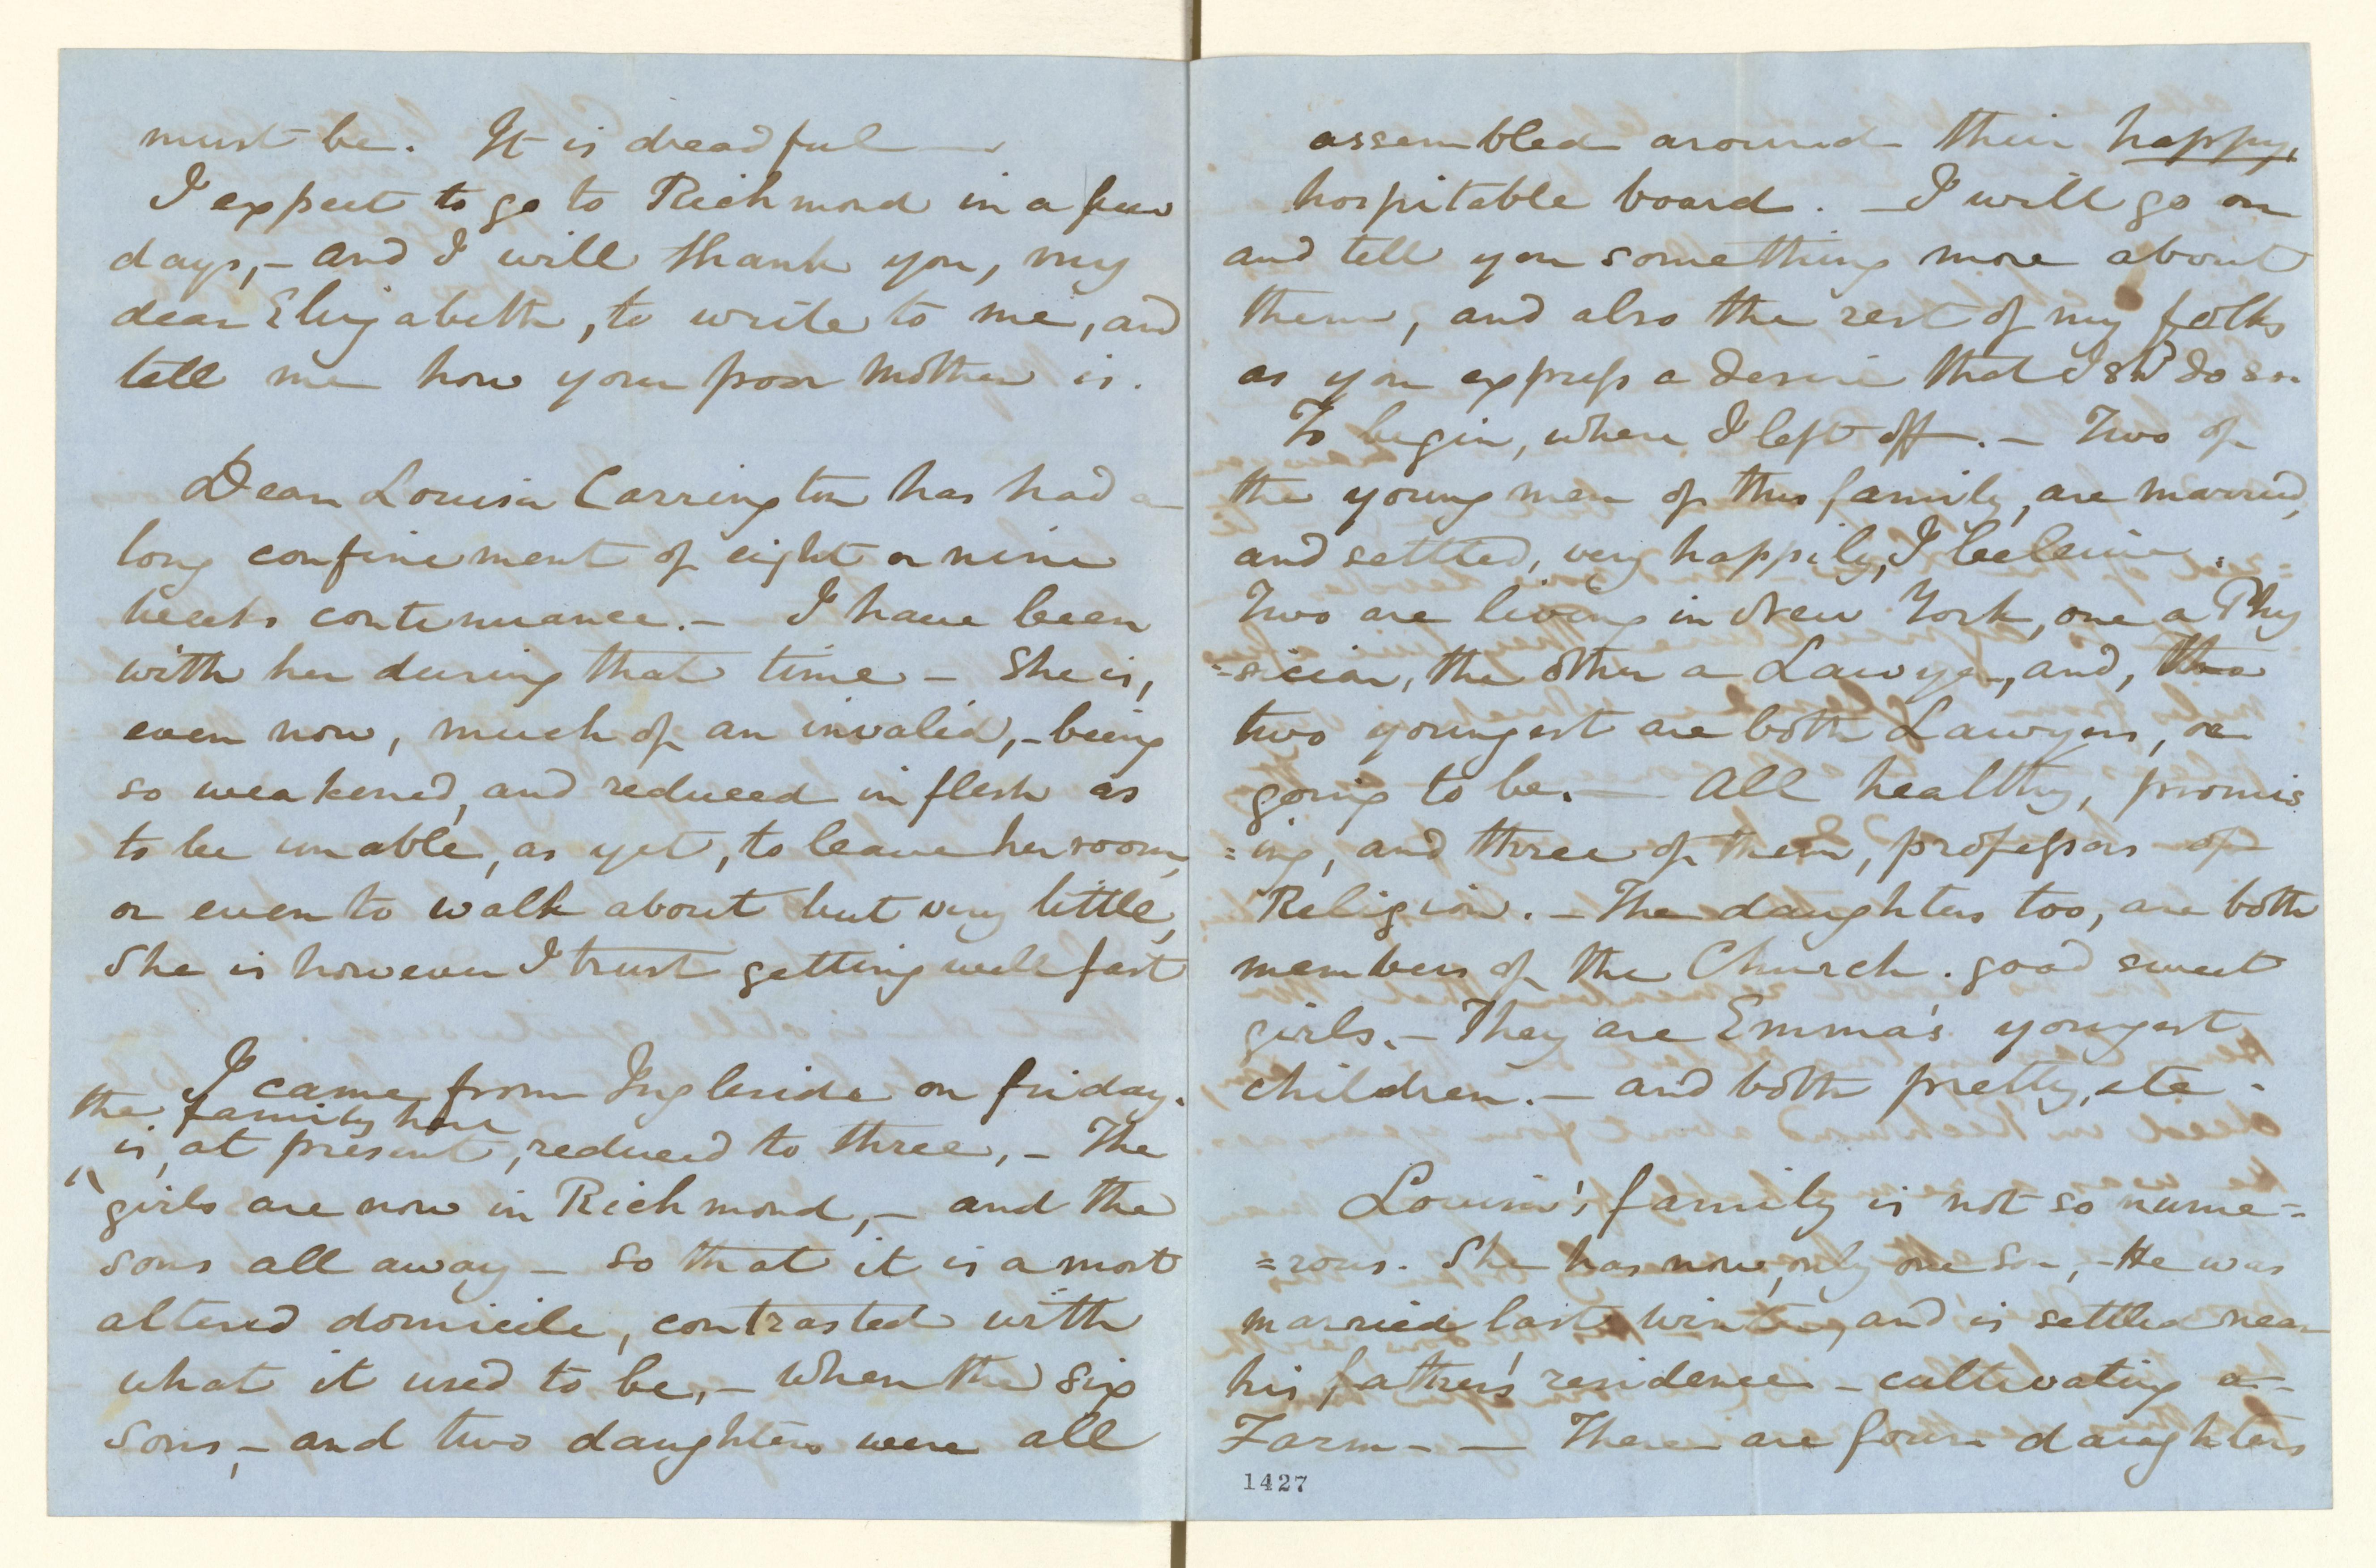 must be. It is dreadful —
I expect to go to Richmond in a few
days, – and I will thank you, my
dear Elizabeth, to write to me, and
tell me how your poor Mother is.
Dear Louisa Carrington has had a
long confinement of eight or nine
weeks contenuance. – I have been
with her during that time – She is,
even now, much of an invalid, – being
so weakened, and reduced in flesh as
to be unable, as yet, to leave her room,
or even to walk about but very little,
She is however I trust getting well fast
I came from Ingleside on friday.
the family here
is, at present, reduced to three, – The
girls are now in Richmond, – and the
sons all away – so that it is a most
altered domicile, contrasted with
what it used to be, – when the six
sons, – and two daughters were all
assembled around their happy,
hospitable board. – I will go on
and tell you something more about
them, and also the rest of my folks
as you express a desire that I shd do so.
To begin, where I left off. – Two of
the young men of this family, are married,
and settled, very happily, I beleive.
Two are living in New York, one a Phy
=sician, the other a Lawyer, and, the
two youngest are both Lawyers, or
going to be. — All healthy, promis
=ing, and three of them, professors of
Religion. – The daughters too, are both
members of the Church. good sweet
girls. – They are Emma's youngest
children. – and both pretty, etc.
Louisa's family is not so nume=
=rous. She has now, only one Son, – He was
married last winter, and is settled near
his father's residence – cultivating a
Farm – — There are four daughters
1427